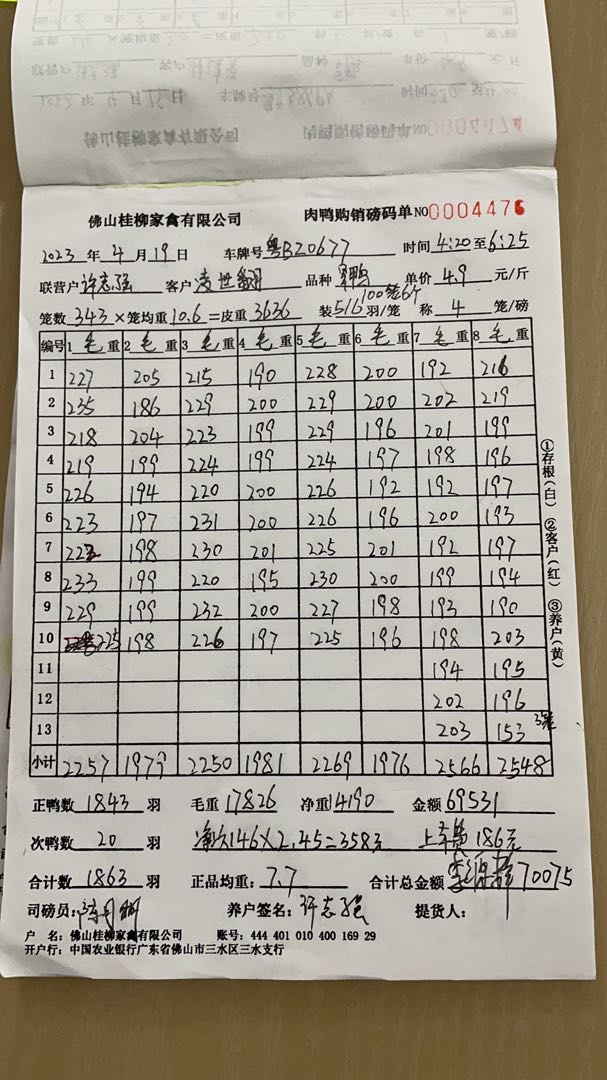 佛山桂柳家禽有限公司 肉鸭购销磅码单 NO 0004476
2023 年 4 月 19 日 车牌号 粤BZ0677 时间 4:20 至 6:25
联营户 许志强 客户 凌世 品种 鸭 单价 4.9 元/斤
100笼6个
笼数 343 × 笼均重 10.6 = 皮重 3636 装 5/6 羽/笼 称 4 笼/磅
编号 1 毛 重 2 毛 重 3 毛 重 4 毛 重 5 毛 重 6 毛 重 7 毛 重 8 毛 重
1 227 205 215 190 228 200 192 216
2 235 186 229 200 229 200 202 219
3 218 204 223 199 229 196 201 199
4 219 199 224 199 224 197 198 196
5 226 194 220 200 226 192 192 197
6 223 197 231 200 226 196 200 193
7 222 198 230 201 225 201 192 197
8 233 199 220 195 230 200 199 194
9 229 199 232 200 227 198 193 190
10 225 198 226 197 225 196 198 203
11 194 195
12 202 196
13 203 153 3笼
小计 2257 1979 2250 1981 2269 1976 2566 2548
①存根(白) ②客户(红) ③养户(黄)
正鸭数 1843 羽 毛重 17826 净重 14190 金额 69531
次鸭数 20 羽 净欠146×2.45=3583 上车费186元
合计数 1863 羽 正品均重: 7.7 合计总金额 70075
司磅员: 养户签名: 许志强 提货人:
户 名: 佛山桂柳家禽有限公司 账号: 444 401 010 400 169 29
开户行: 中国农业银行广东省佛山市三水区三水支行